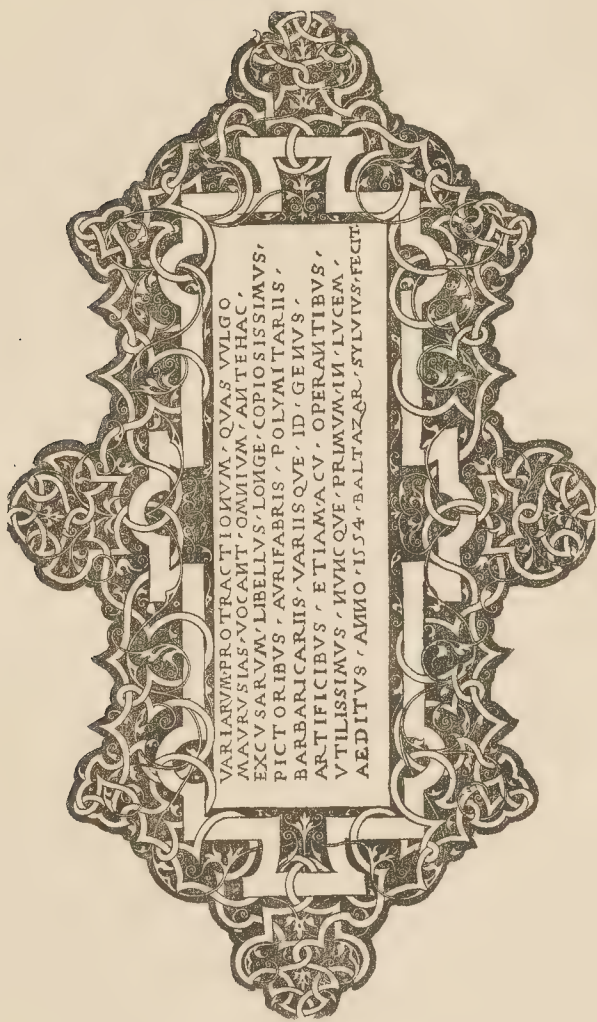 VARIARVM·PROTRACTIONVM·QVAS VVLGO
MAVRVSIAS·VOCANT·OMNIVM·ANTEHAC·
EXCVSARVM·LIBELLVS·LONGE·COPIOSISSIMVS·
PICTORIBVS·AVRIFABRIS·POLYMITARIIS·
BARBARICARIIS·VARIISQVE·ID·GENVS·
ARTIFICIBVS·ETIAMACV·OPERANTIBVS·
VTILISSIMVS·NVNCQVE·PRIMVM·IN·LVCEM·
AEDITVS·ANNO·1554·BALTAZAR·SYLVIVS·FECIT·